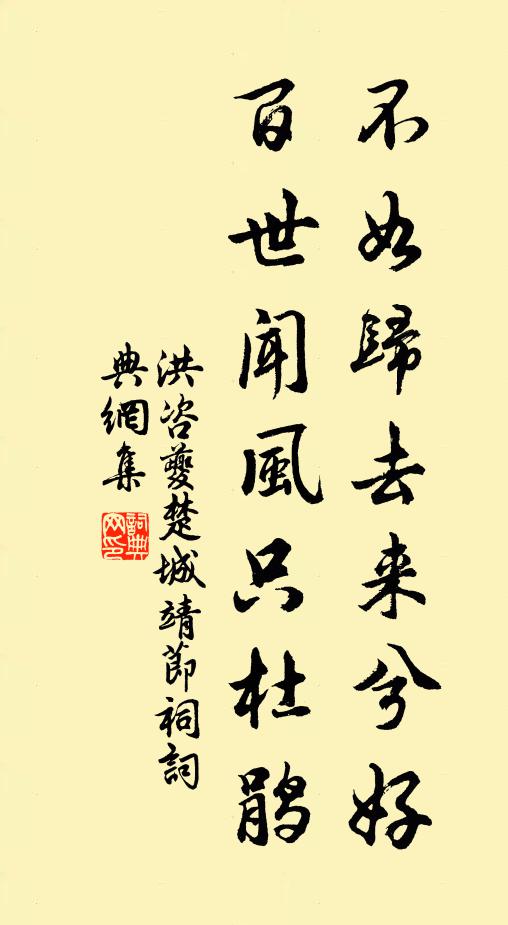 不如歸去来兮好
百世闻風只杜鹃
洪咨夔楚城靖節祠詞
典網集
詞典網印